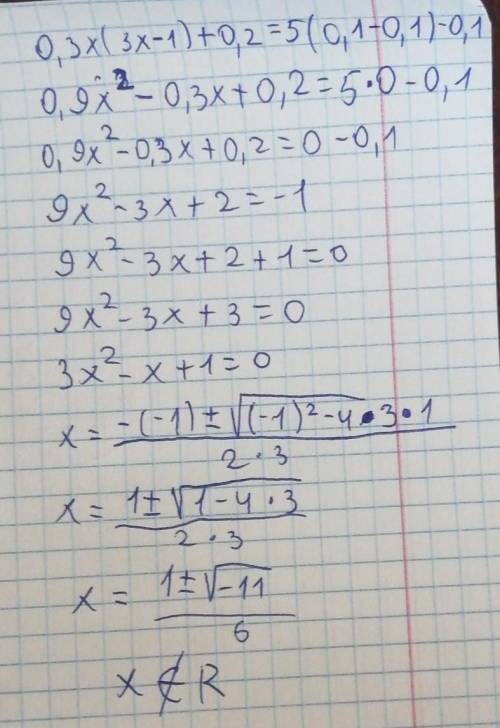 0,3x(3x-1)+0,2=5(0,1-0,1)-0,1
0,9x²-0,3x+0,2=5·0-0,1
0,9x²-0,3x+0,2=0-0,1
9x²-3x+2=-1
9x²-3x+2+1=0
9x²-3x+3=0
3x²-x+1=0
x=(-(-1)±√((-1)²-4·3·1))/(2·3)
x=(1±√(1-4·3))/(2·3)
x=(1±√(-11))/6
x∉R